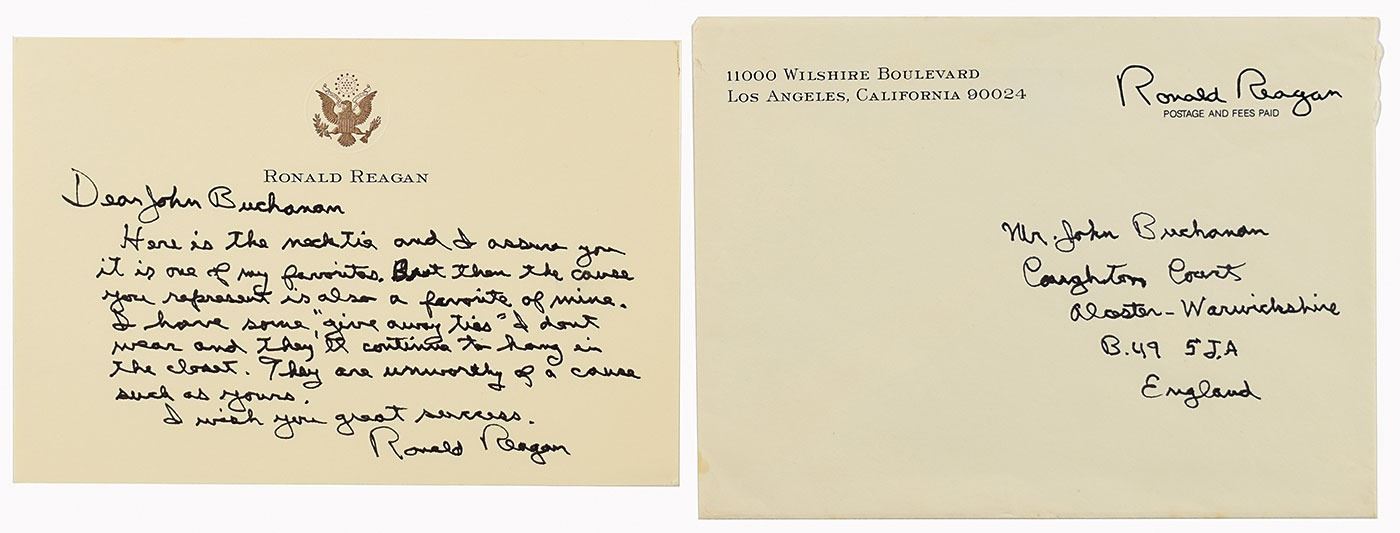 RONALD REAGAN
Dear John Buchanan
Here is the necktie and I assure you
it is one of my favorites. But then the cause
you represent is also a favorite of mine.
I have some "give away ties" I dont
wear and they'll continue to hang in
the closet. They are unworthy of a cause
such as yours.
I wish you great success.
Ronald Reagan
11000 WILSHIRE BOULEVARD
LOS ANGELES, CALIFORNIA 90024
Ronald Reagan
POSTAGE AND FEES PAID
Mr. John Buchanan
Coughton Courts
Alcester-Warwickshire
B.49 5JA
England